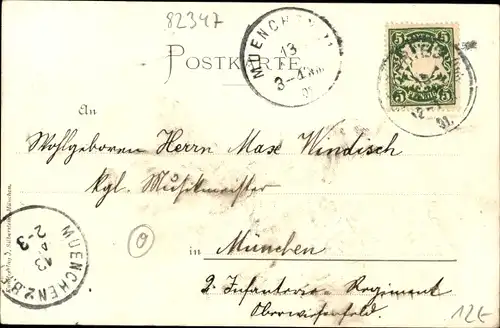 82347
MUENCHEN 11
13
3-4 Nm.
POSTKARTE
5 5
5 5
An
Wohlgeboren Herrn Max Windisch
kgl. Musikmeister
in München
2. Infanterie-Regiment
Oberwiesenfeld.
MUENCHEN 2. B.
13
2-3
0
12E